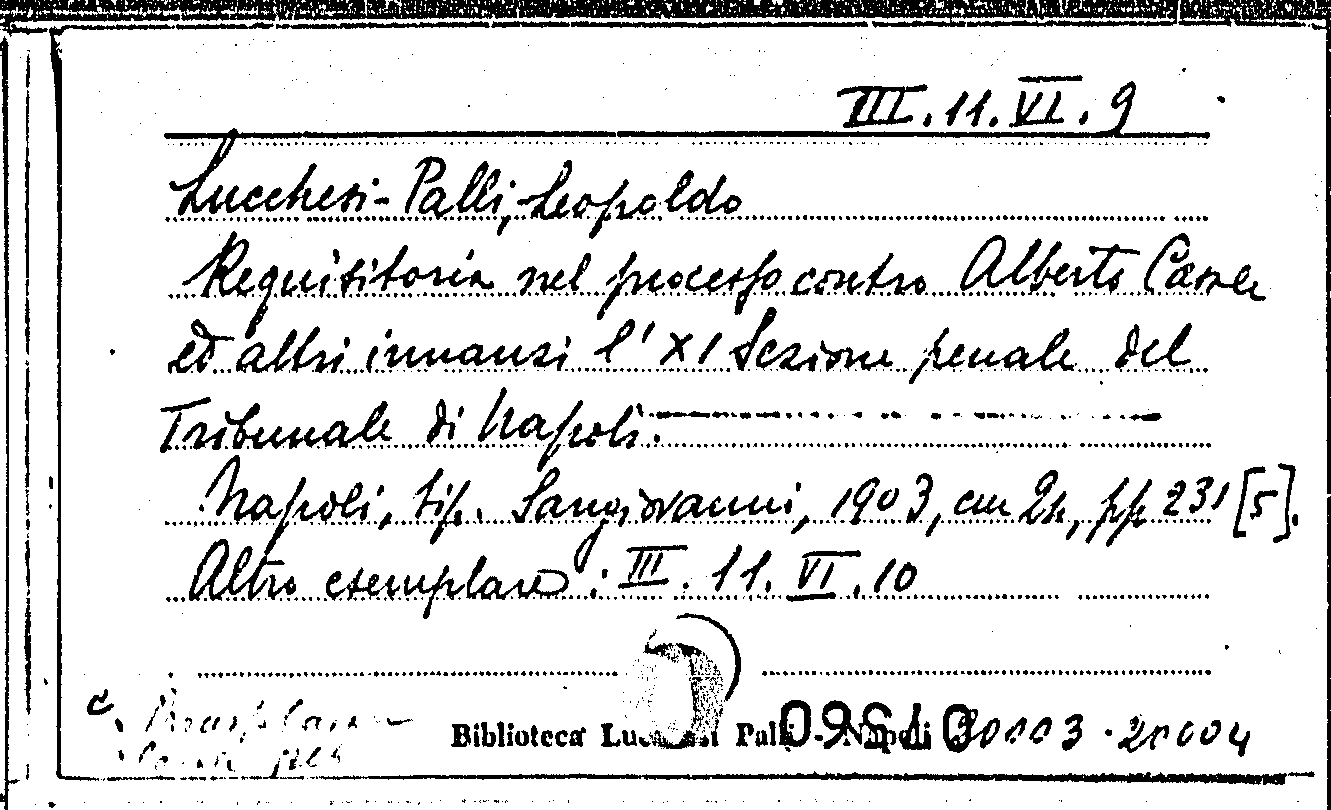 III.11.VI.9
Lucchesi-Palli, Leopoldo
Requisitoria nel processo contro Alberto
ed altri innanzi l'XI Sezione penale del
Tribunale di Napoli.
Napoli, tip. Sangiovanni, 1903, cm 24, pp 231 [5].
Altro esemplare: III.11.VI.10
Biblioteca Lucchesi Palli - Napoli